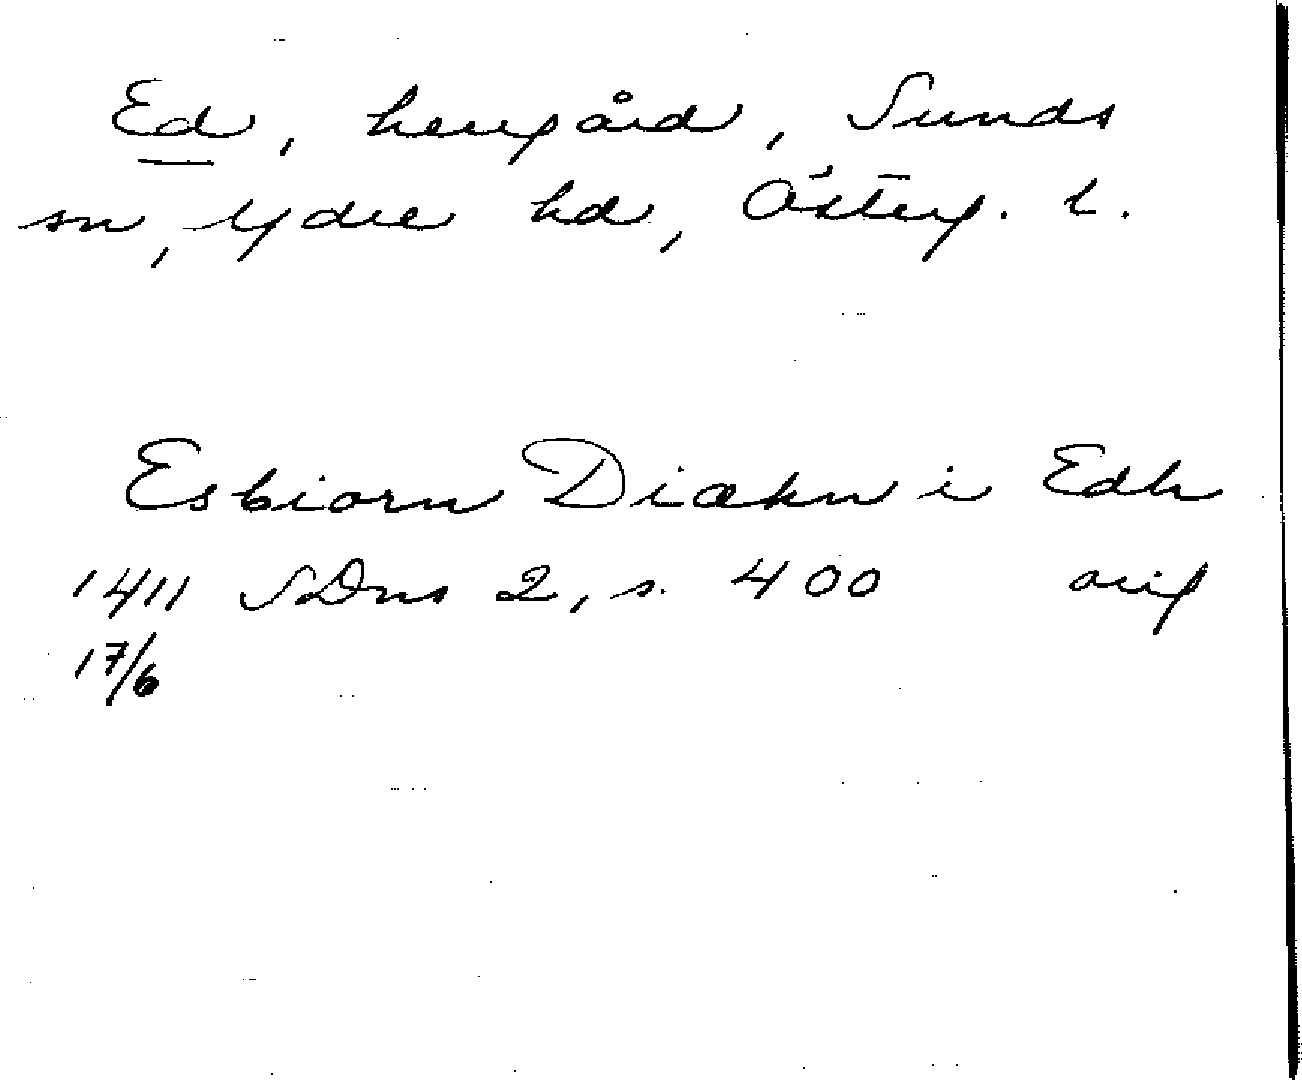 Ed, herrgård, Sunds
sn, Ydre hd, Österg. l.
Esbiorn Diækn i Edh
1411 SDns 2, s. 400 orig
17/6